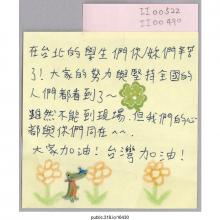 II00522
II00490
在台北的學生們你/妳們辛苦
了!大家的努力與堅持全國的
人們都看到了~
雖然不能到現場,但我們的心
都與你們同在^^.
大家加油!台灣加油!
public.318.io/6430